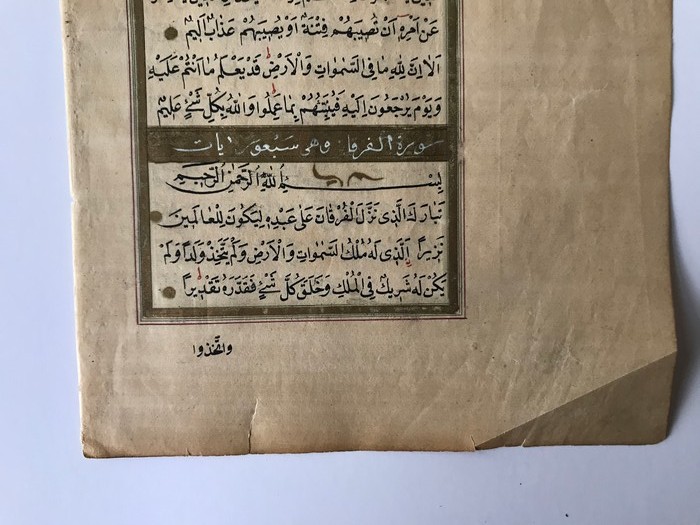 عَنْ اَمْرِهِ اَنْ تُصِيبَهُمْ فِتْنَةٌ اَوْ يُصِيبَهُمْ عَذَابٌ اَلِيمٌ
اَلَا اِنَّ لِلّٰهِ مَا فِى السَّمٰوَاتِ وَالْاَرْضِ قَدْ يَعْلَمُ مَا اَنْتُمْ عَلَيْهِ
وَيَوْمَ يُرْجَعُونَ اِلَيْهِ فَيُنَبِّئُهُمْ بِمَا عَمِلُوا وَاللّٰهُ بِكُلِّ شَىْءٍ عَلِيمٌ
سورة الفرقا وهى سبعو ايات
بِسْمِ اللّٰهِ الرَّحْمٰنِ الرَّحِيمِ
تَبَارَكَ الَّذِى نَزَّلَ الْفُرْقَانَ عَلٰى عَبْدِهِ لِيَكُونَ لِلْعَالَمِينَ
نَذِيرًا اَلَّذِى لَهُ مُلْكُ السَّمٰوَاتِ وَالْاَرْضِ وَلَمْ يَتَّخِذْ وَلَدًا وَلَمْ
يَكُنْ لَهُ شَرِيكٌ فِى الْمُلْكِ وَخَلَقَ كُلَّ شَىْءٍ فَقَدَّرَهُ تَقْدِيرًا
وَاتَّخَذُوا